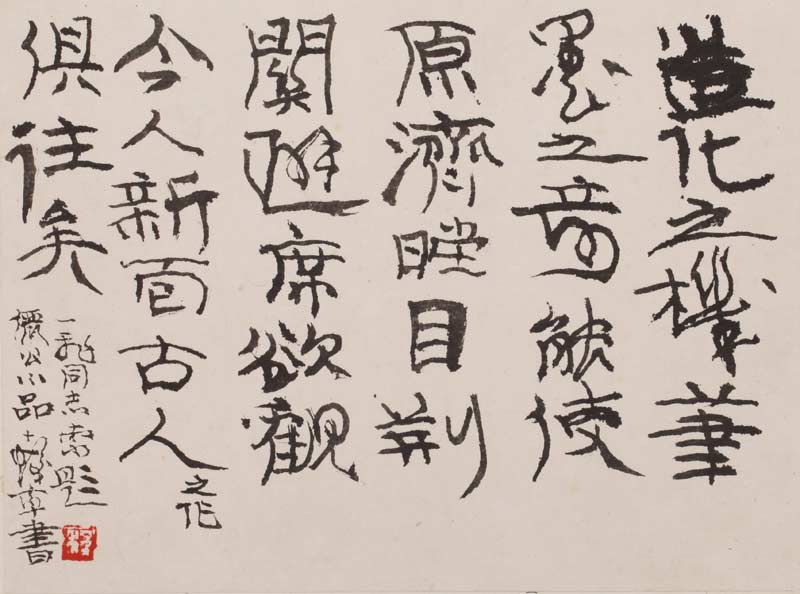 造化之機筆
墨之奇能使
原濟瞠目荊
關避席欲觀
今人新面古人之作
俱往矣
一同志索題
儼公小品十髮書